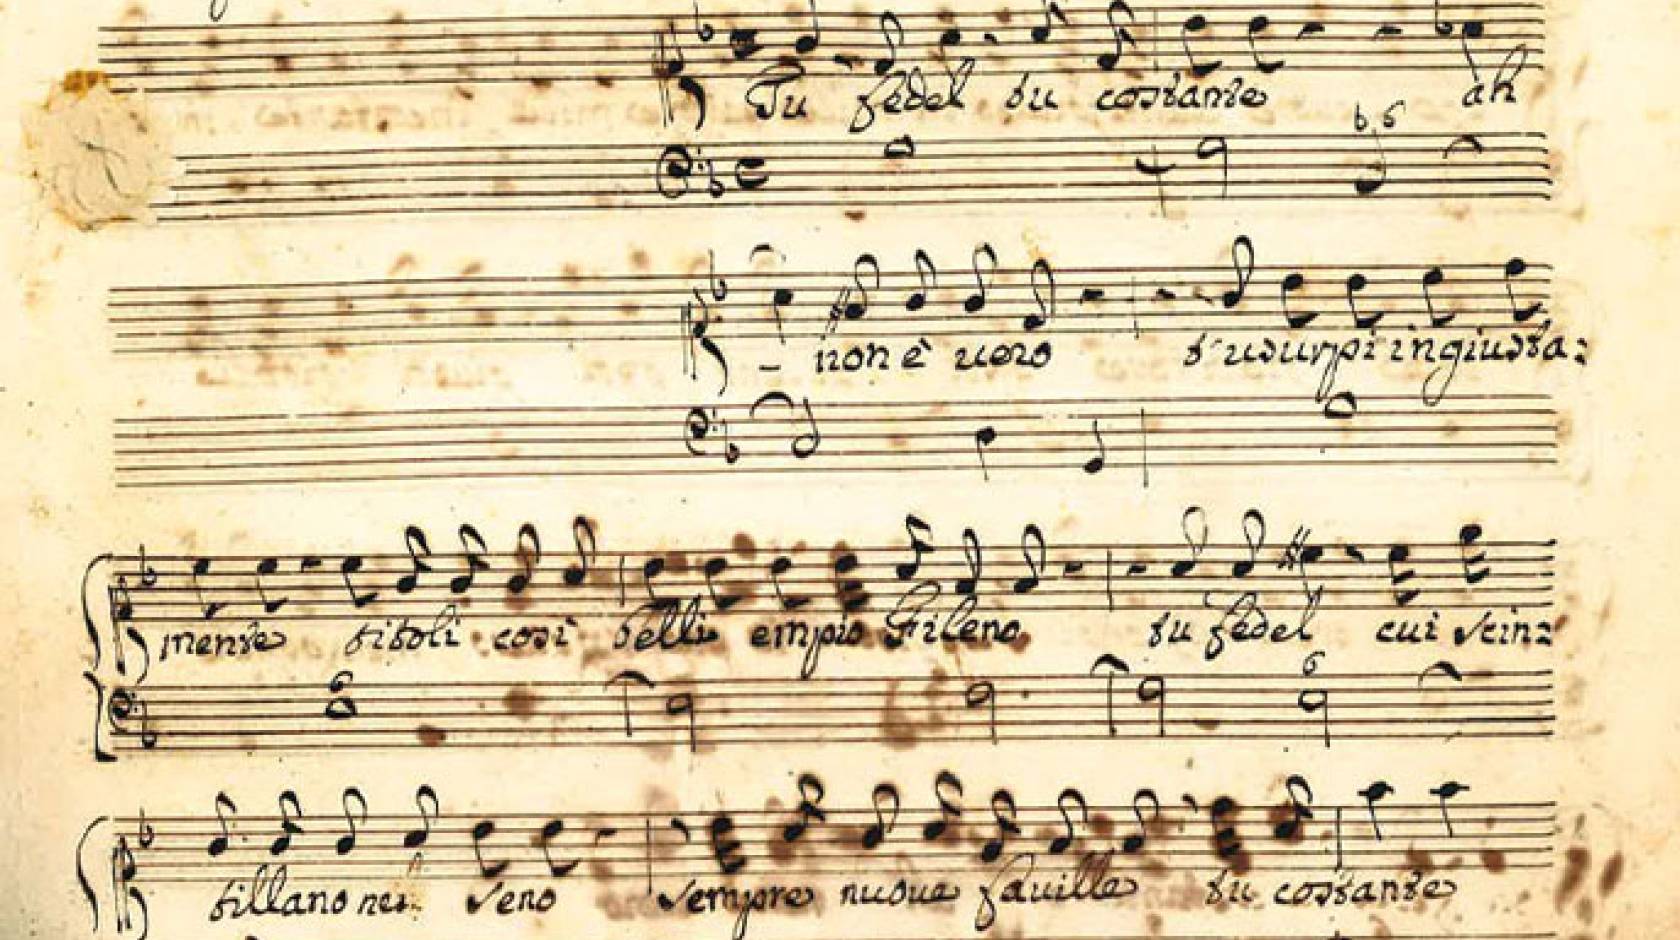 Tu fedel tu costante ah
b 6
non è vero t'usurpi ingiusta:
mente titoli così belli empio Fileno tu fedel cui scin:
6 6
tillano nel seno sempre nuove faville tu costante